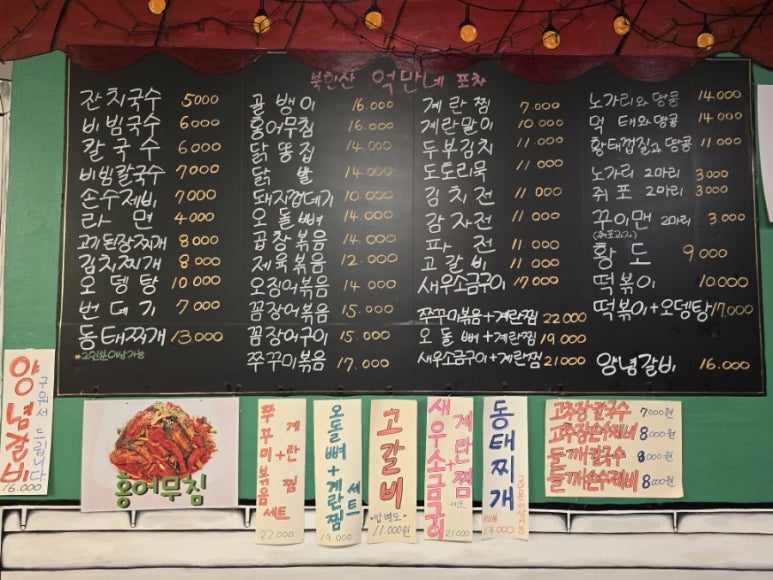 북한산 억만네 포차
잔치국수 5000
비빔국수 6000
칼국수 6000
비빔칼국수 7000
손수제비 7000
라면 4000
고기된장찌개 8000
김치찌개 8000
오뎅탕 10000
번데기 7000
동태찌개 13.000
*2인분이상가능
골뱅이 16.000
홍어무침 16.000
닭똥집 14.000
닭발 14.000
돼지껍데기 10.000
오돌뼈 14.000
곱창볶음 14.000
제육볶음 12.000
오징어볶음 14.000
꼼장어볶음 15.000
꼼장어구이 15.000
쭈꾸미볶음 17.000
계란찜 7.000
계란말이 10.000
두부김치 11.000
도토리묵 11.000
김치전 11.000
감자전 11.000
파전 11.000
고갈비 11.000
새우소금구이 17.000
쭈꾸미볶음+계란찜 22000
오돌뼈+계란찜 19.000
새우소금구이+계란찜 21000
노가리와 땅콩 14.000
먹태와 땅콩 14.000
황태껍질과 땅콩 11.000
노가리 2마리 3000
쥐포 2마리 3000
꾸이맨 2마리 3.000
황도 9.000
떡볶이 10000
떡볶이+오뎅탕 17.000
양념갈비 16.000
양념갈비
구워서 드립니다
16.000
홍어무침
쭈꾸미볶음+계란찜 세트
22000
오돌뼈+계란찜 세트
19000
고갈비
*밥별도*
11.000원
새우소금구이+계란찜 세트
21.000
동태찌개
13.000
고추장칼국수 7000원
고추장손수제비 8000원
들깨칼국수 8000원
들깨손수제비 8000원